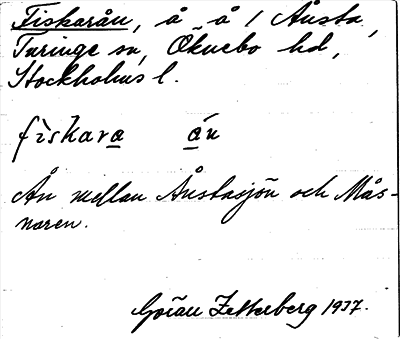 Fiskarån, å å / Åusta,
Turinge sn, Öknebo hd,
Stockholms l.
fìskara án
Ån mellan Åustasjön och Mås-
naren.
Göran Zetterberg 1937.